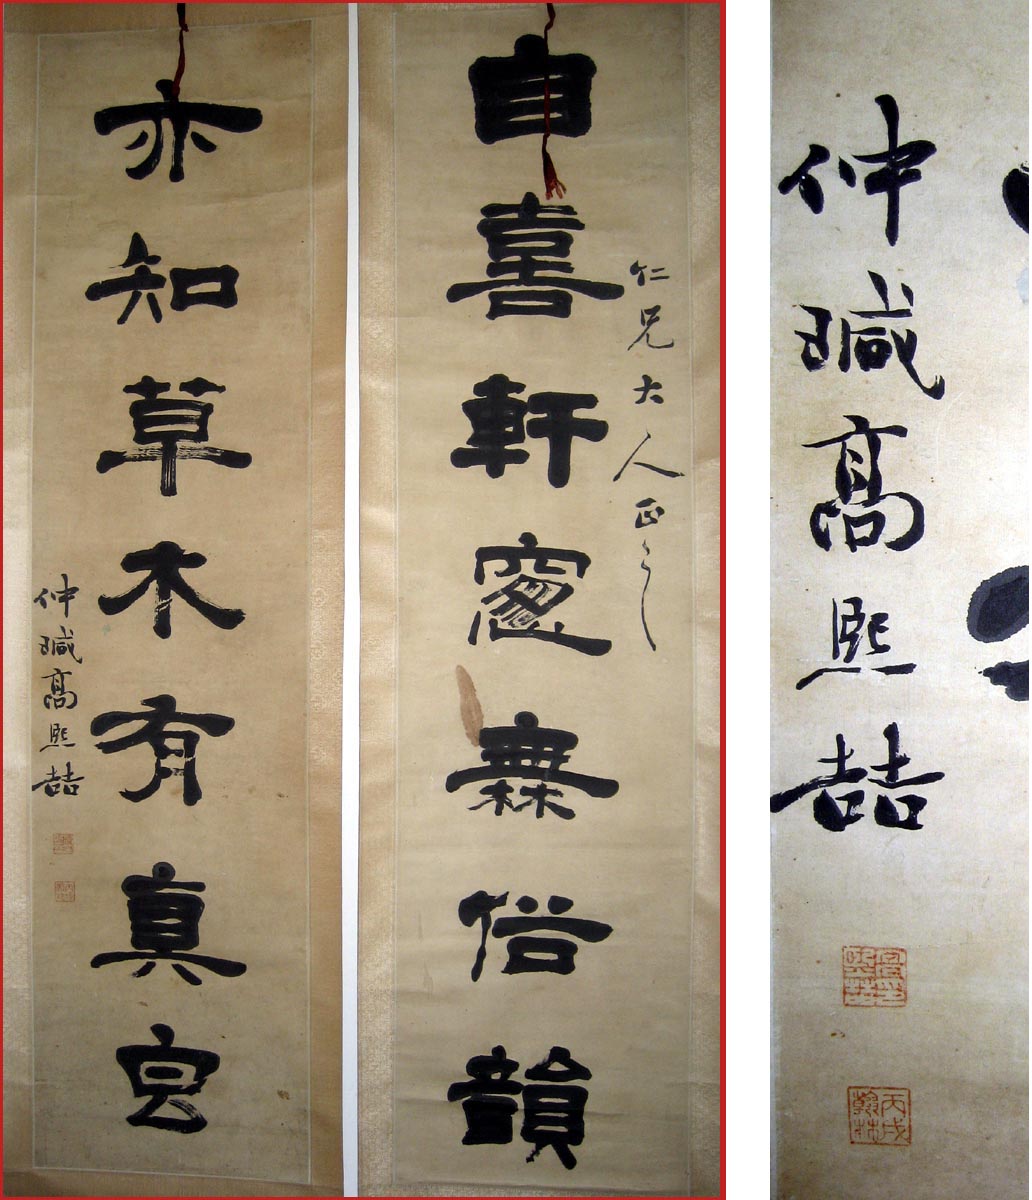 自喜軒窻無俗韻
仁兄大人正之
亦知草木有真皀
仲瑊髙熙喆
仲瑊髙熙喆
丙戌翰林